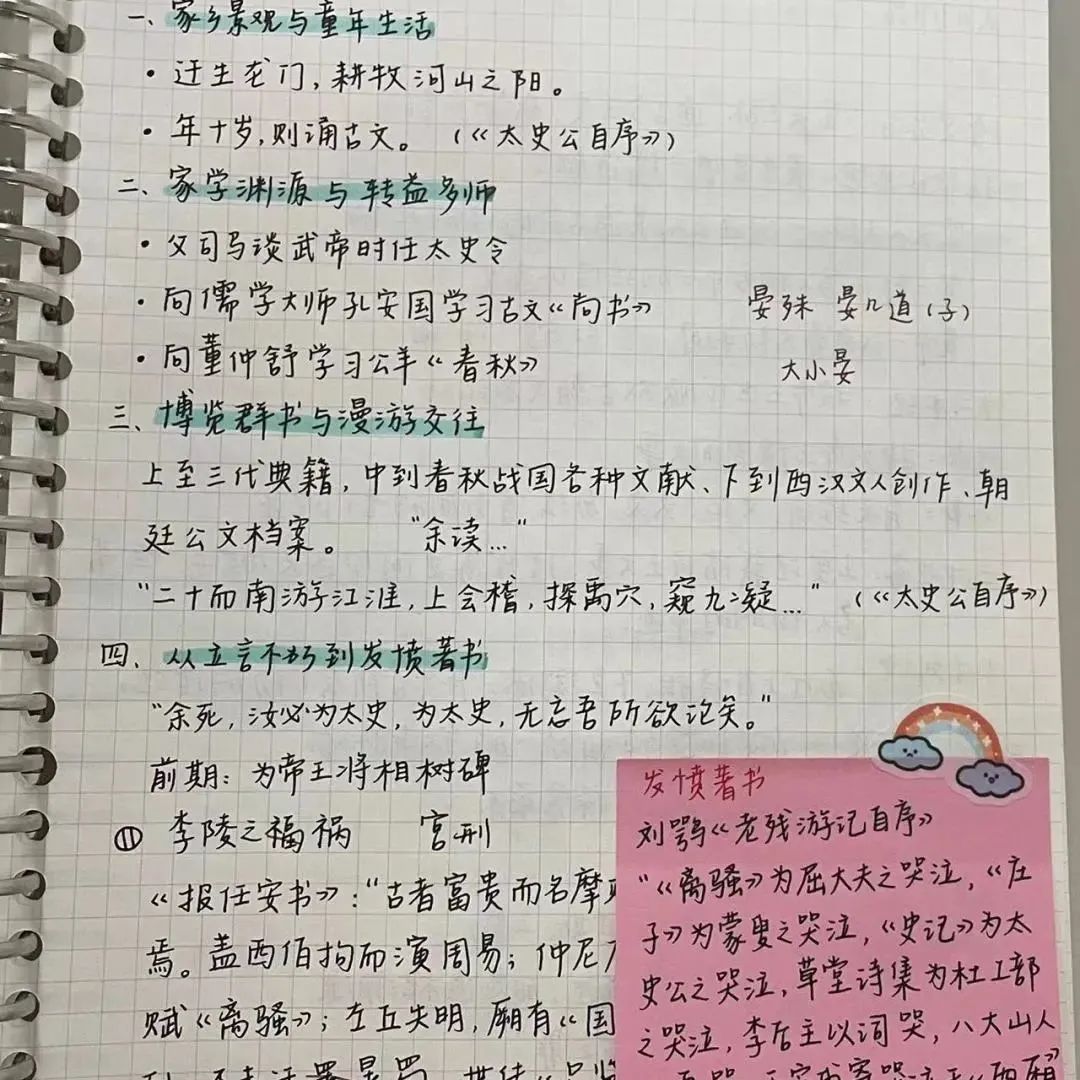 一、家乡景观与童年生活
·迁生龙门，耕牧河山之阳。
·年十岁，则诵古文。（《太史公自序》）
二、家学渊源与转益多师
·父司马谈武帝时任太史令
·向儒学大师孔安国学习古文《尚书》
晏殊 晏几道（子）
·向董仲舒学习公羊《春秋》
大小晏
三、博览群书与漫游交往
上至三代典籍，中到春秋战国各种文献、下到西汉文人创作、朝
廷公文档案。 “余读…”
“二十而南游江淮，上会稽，探禹穴，窥九疑…”（《太史公自序》）
四、从立言不朽到发愤著书
“余死，汝必为太史，为太史，无忘吾所欲论矣。”
前期：为帝王将相树碑
⑪ 李陵之福祸 宫刑
《报任安书》：“古者富贵而名摩
焉。盖西伯拘而演周易；仲尼
赋《离骚》；左丘失明，厥有《国
发愤著书
刘鹗《老残游记自序》
“《离骚》为屈大夫之哭泣，《庄
子》为蒙叟之哭泣，《史记》为太
史公之哭泣，草堂诗集为杜工部
之哭泣，李后主以词哭，八大山人